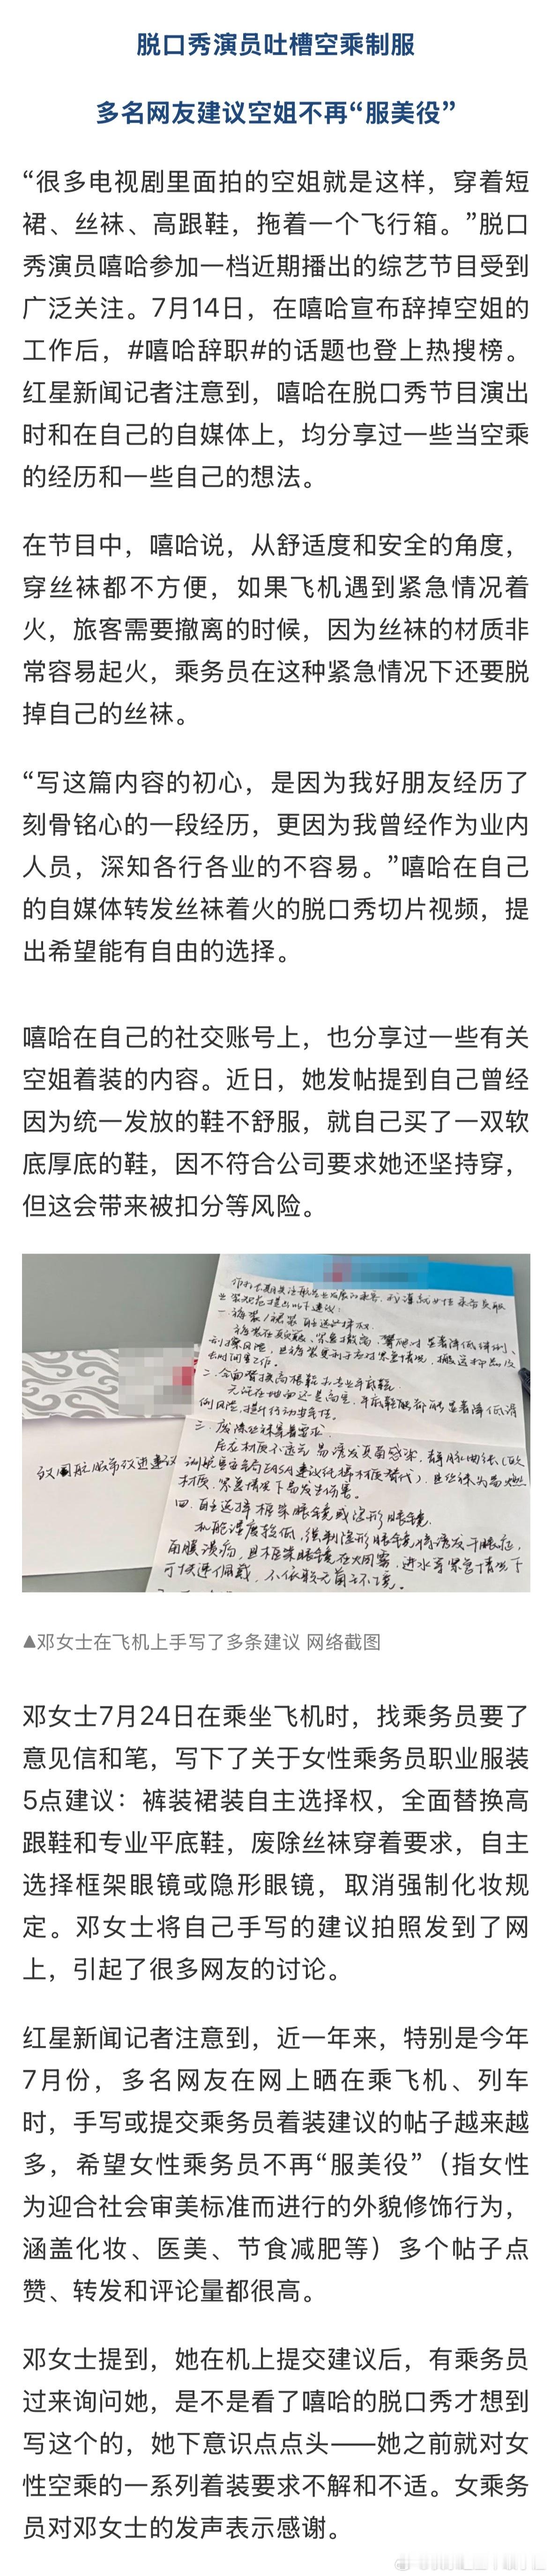 脱口秀演员吐槽空乘制服
多名网友建议空姐不再“服美役”
“很多电视剧里面拍的空姐就是这样，穿着短
裙、丝袜、高跟鞋，拖着一个飞行箱。”脱口
秀演员嘻哈参加一档近期播出的综艺节目受到
广泛关注。7月14日，在嘻哈宣布辞掉空姐的
工作后，#嘻哈辞职#的话题也登上热搜榜。
红星新闻记者注意到，嘻哈在脱口秀节目演出
时和在自己的自媒体上，均分享过一些当空乘
的经历和一些自己的想法。
在节目中，嘻哈说，从舒适度和安全的角度，
穿丝袜都不方便，如果飞机遇到紧急情况着
火，旅客需要撤离的时候，因为丝袜的材质非
常容易起火，乘务员在这种紧急情况下还要脱
掉自己的丝袜。
“写这篇内容的初心，是因为我好朋友经历了
刻骨铭心的一段经历，更因为我曾经作为业内
人员，深知各行各业的不容易。”嘻哈在自己
的自媒体转发丝袜着火的脱口秀切片视频，提
出希望能有自由的选择。
嘻哈在自己的社交账号上，也分享过一些有关
空姐着装的内容。近日，她发帖提到自己曾经
因为统一发放的鞋不舒服，就自己买了一双软
底厚底的鞋，因不符合公司要求她还坚持穿，
但这会带来被扣分等风险。
一、裤装/裙装自主选择权
二、全面替换高跟鞋为专业平底鞋
三、废除丝袜穿着要求
四、自主选择框架眼镜或隐形眼镜
▲邓女士在飞机上手写了多条建议 网络截图
邓女士7月24日在乘坐飞机时，找乘务员要了
意见信和笔，写下了关于女性乘务员职业服装
5点建议：裤装裙装自主选择权，全面替换高
跟鞋和专业平底鞋，废除丝袜穿着要求，自主
选择框架眼镜或隐形眼镜，取消强制化妆规
定。邓女士将自己手写的建议拍照发到了网
上，引起了很多网友的讨论。
红星新闻记者注意到，近一年来，特别是今年
7月份，多名网友在网上晒在乘飞机、列车
时，手写或提交乘务员着装建议的帖子越来越
多，希望女性乘务员不再“服美役”（指女性
为迎合社会审美标准而进行的外貌修饰行为，
涵盖化妆、医美、节食减肥等）多个帖子点
赞、转发和评论量都很高。
邓女士提到，她在机上提交建议后，有乘务员
过来询问她，是不是看了嘻哈的脱口秀才想到
写这个的，她下意识点点头——她之前就对女
性空乘的一系列着装要求不解和不适。女乘务
员对邓女士的发声表示感谢。